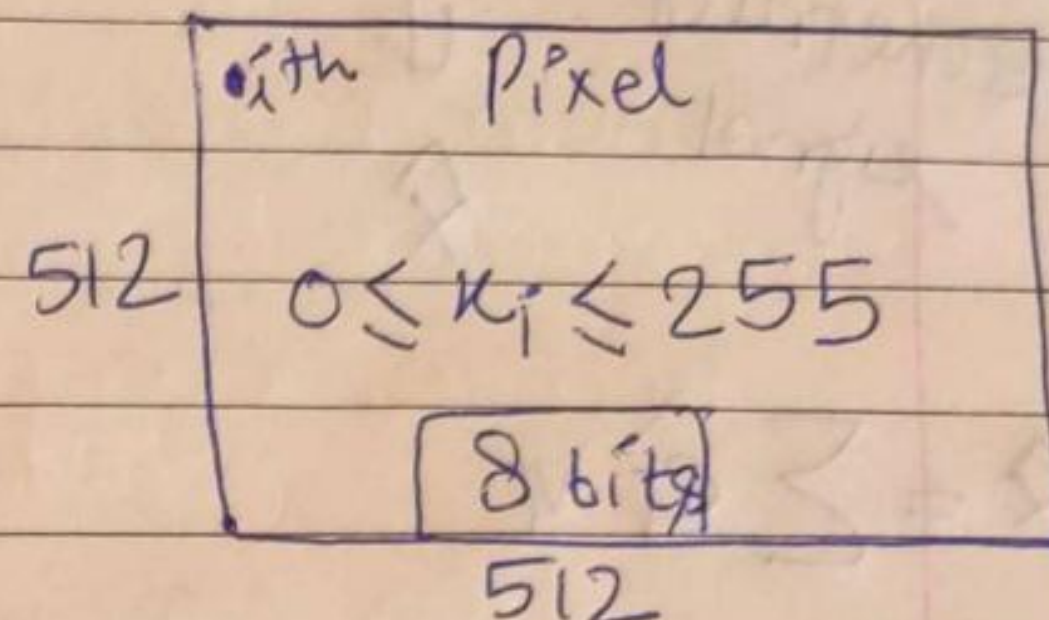 ith Pixel
512 0 ≤ xᵢ ≤ 255
8 bits
512